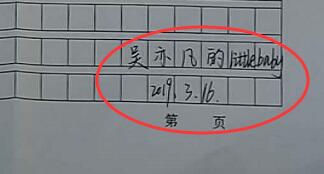 吴亦凡的littlebaby
2019.3.16.
第 页